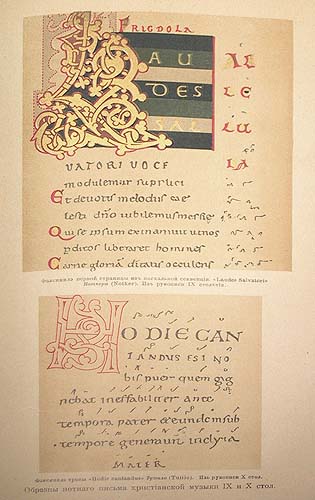 FRIGDOLA
L AU AL
DES LE
SAL LU
IA
VATORI VOCE
modulemur supplici
Et devotis melodiis cae
lesti dño iubilemus messie
Qui se ipsum exinanivit ut nos
pditos liberaret homines
Carne gloriā ditatis occulens
Факсимиле первой страницы изъ пасхальной секвенціи «Laudes Salvatori»
Ноткера (Notker). Изъ рукописи IX столѣтія.
HODIE CAN
TANDUS EST NO
bis puer quem gig
nebat ineffabiliter ante
tempora pater & eundem sub
tempore generavit inclyta
MATER
Факсимиле тропа «Hodie cantandus» Изъ рукописи X стол.
Образцы нотнаго письма христіанской музыки IX и X стол.